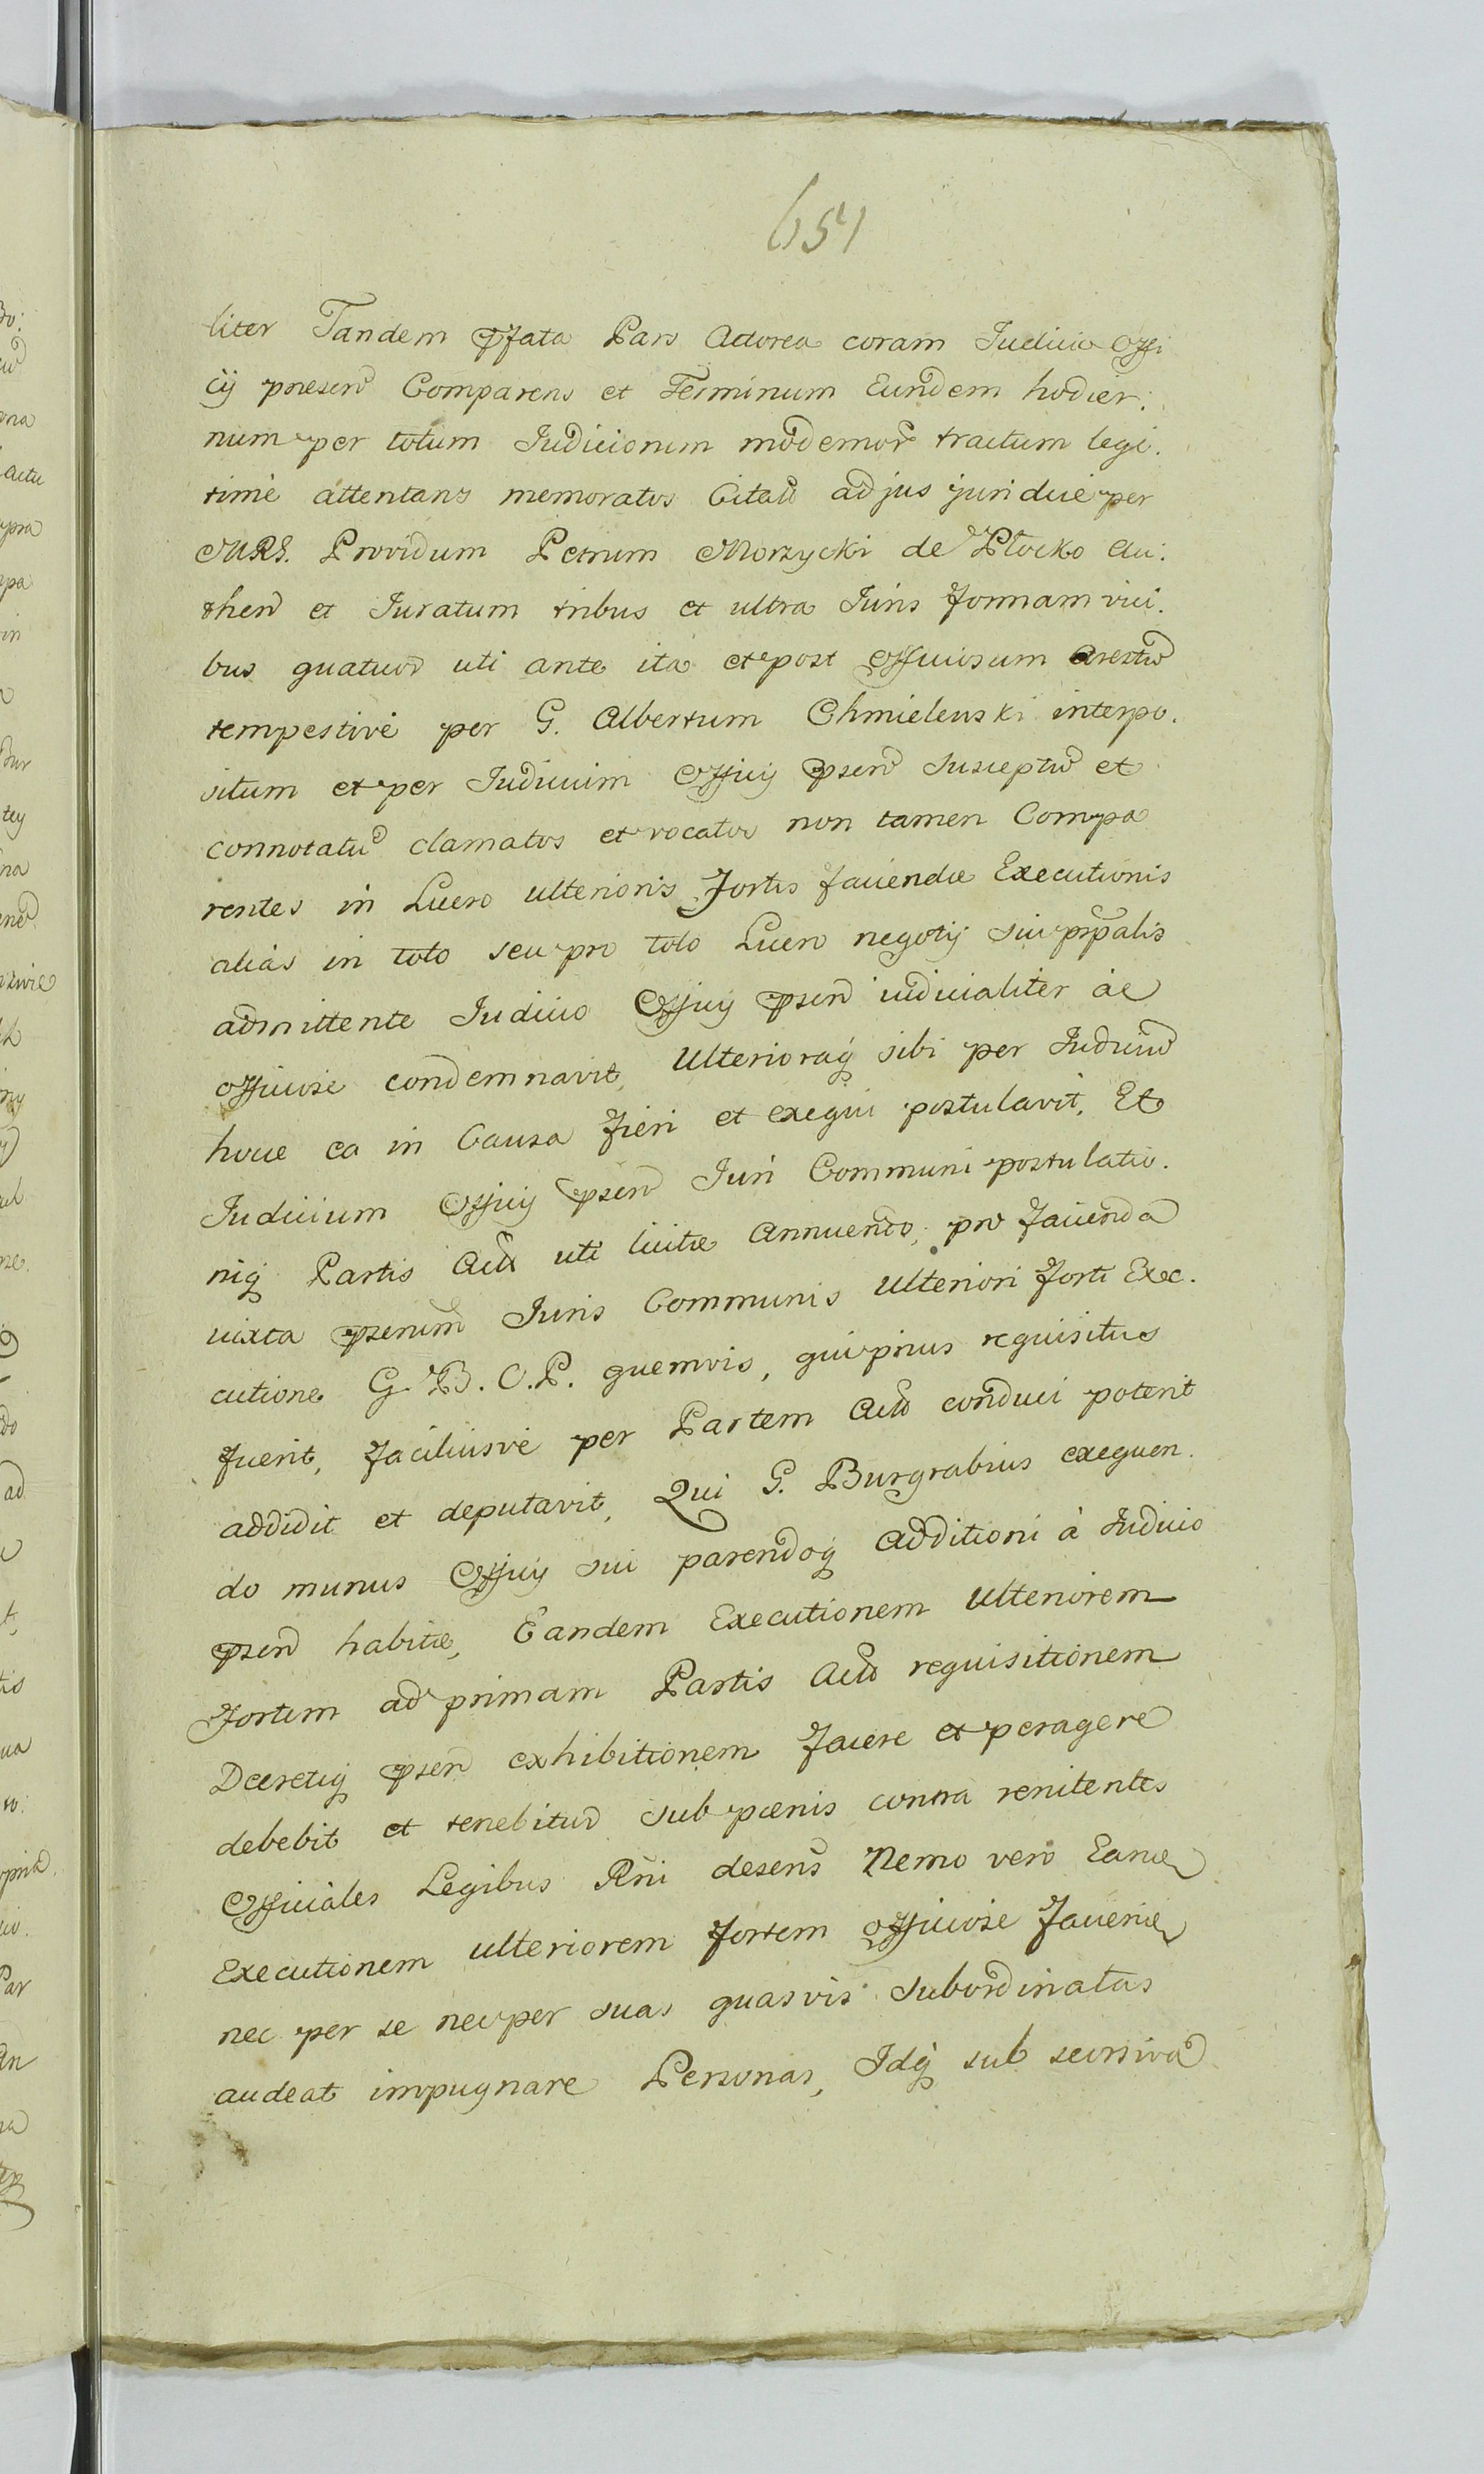 651
liter Tandem pfata Pars Actorea coram Iudicio Offi
cij praesen Comparens et Terminum Eundem hodier:
num per totum Iudiciorum modernor tractum legi.
timè attentans memoratos Citatos ad jus juridicè per
MRG. Providum Petrum Morzycki de Płocko Au:
then et Iuratum tribus et ultra Iuris formam vici.
bus quatuor uti ante ita et post Officiosum Arestu
tempestivè per G. Albertum Chmielewski interpo.
situm et per Iudicium Officij psen susceptu et
connotatu clamatos et vocatos non tamen Compa
rentes in Lucro ulterioris Fortis faciendae Executionis
aliàs in toto seu pro toto Lucro negotij sui prpalis
admittente Iudicio Officij psen iudicialiter ac
officiosè condemnavit, Ulterioraq sibi per Iudiciu
hocce ea in Causa fieri et exequi postulavit, Et
Iudicium Officij psen Iuri Communi postulatio.
niq Partis Act uti licitae Annuendo, pro facienda
iuxta psenum Iuris Communis Ulteriori forti Exe.
cutione G. B. C. P. quemvis, qui prius requisitus
fuerit, faciliusvè per Partem Act conduci poterit
addidit et deputavit, Qui G. Burgrabius exequen.
do munus Officij sui parendoq Additioni à Iudicio
psen habitae, Eandem Executionem Ulteriorem
Fortem ad primam Partis Act requisitionem
Decretiq psen exhibitionem facere et peragere
debebit et tenebitur sub paenis contra renitentes
Officiales Legibus Rni desens Nemo vero Eance
Executionem ulteriorem fortem officiosè facien
nec per se nec per suas quasvis subordinatas
audeat impugnare Personas, Idq sub seorsiva